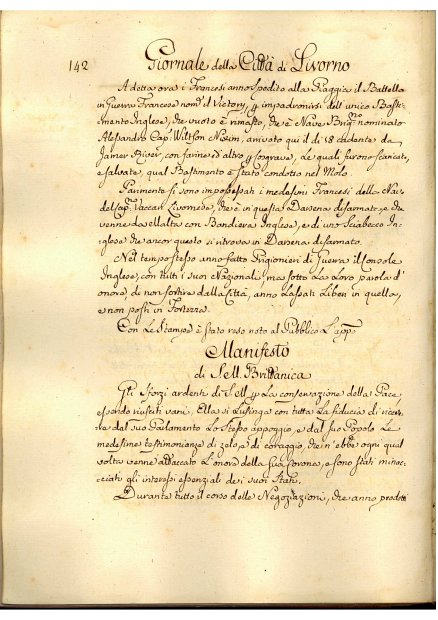 142 Giornale della Città di Livorno
A dett'a ora i Francesi anno spedito alla Piaggia il Battello
in Guerra Francese nom.º il Victory, p impadronirsi dell'unico Basti-
mento Inglese, che vuoto è rimasto, che è Nave Brig.no nominato
Alessandro Cap.º Wiltson Nixim, arrivato qui il dì 18 cadente da
James River, con farine ed altro p Cosgrave, le quali furono scaricate,
e salvate, qual Bastimento è stato condotto nel Molo.
Parimente si sono impossessati i medesimi Francesi della Nave
del Cap.º Vaccari Livornese, che è in questa Darsena disarmata, e che
venne da ell'alta con Bandiera Inglese, e di uno Sciabecco In-
glese che ancor questo si ritrova in Darsena disarmato.
Nel tempo stesso anno fatto Prigionieri di Guerra il Console
Inglese, con tutti i suoi Nazionali, ma sotto la loro parola d'
onore, di non sortire dalla Città, anno lassati liberi in quella,
e non posti in Fortezza.
Con le Stampe è stato reso noto al Pubblico l'app.º
Manifesto
di S. M. Brittanica
Gli sforzi ardenti di S. M. p la conservazione della Pace
essendo riusciti vani, Ella si lusinga con tutta la fiducia di riceve-
re dal suo Parlamento lo stesso appoggio, e dal suo Popolo le
medesime testimonianze di zelo, e di coraggio, che n'ebbe ogni qual
volta venne attaccato l'onore della sua Corona, e sono stati minac-
ciati gli interessi essenziali dei suoi Stati.
Durante tutto il corso delle Negoziazioni, che anno prodotti